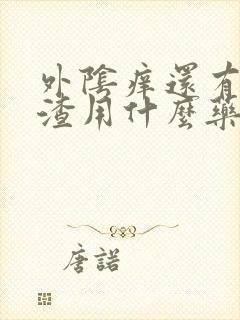 外陰痒還有
渣用什麼藥
唐諾